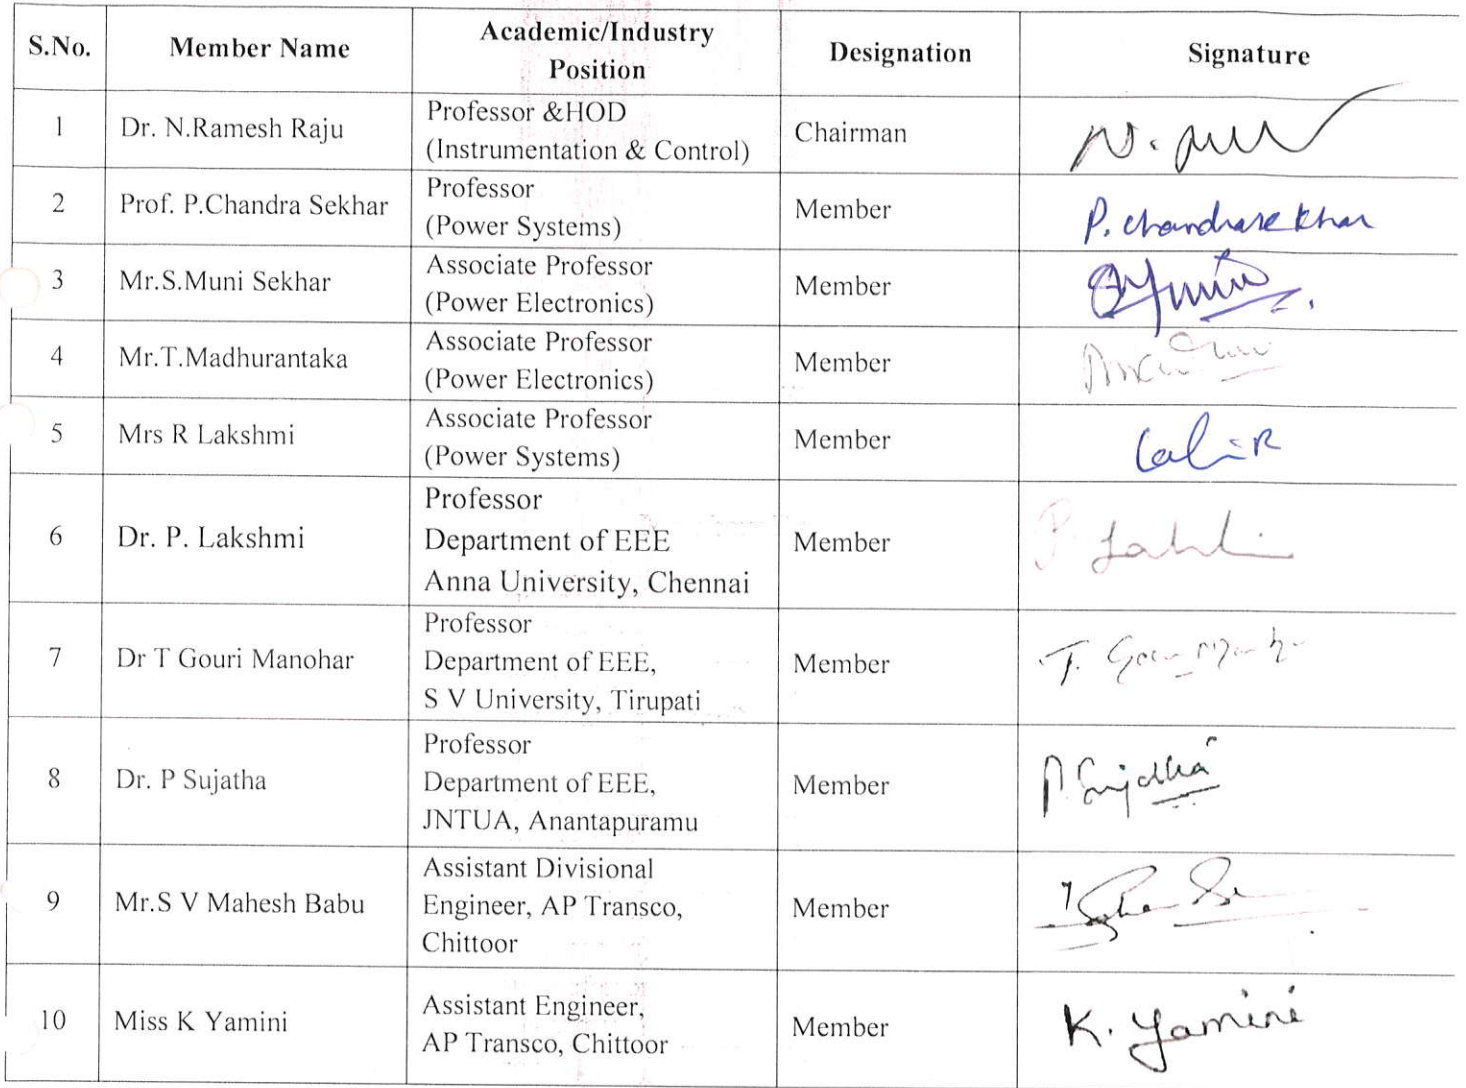 S.No. Member Name Academic/Industry Position Designation Signature
1 Dr. N.Ramesh Raju Professor &HOD (Instrumentation & Control) Chairman
2 Prof. P.Chandra Sekhar Professor (Power Systems) Member P. Chandrasekhar
3 Mr.S.Muni Sekhar Associate Professor (Power Electronics) Member
4 Mr.T.Madhurantaka Associate Professor (Power Electronics) Member
5 Mrs R Lakshmi Associate Professor (Power Systems) Member
6 Dr. P. Lakshmi Professor Department of EEE Anna University, Chennai Member
7 Dr T Gouri Manohar Professor Department of EEE, S V University, Tirupati Member
8 Dr. P Sujatha Professor Department of EEE, JNTUA, Anantapuramu Member
9 Mr.S V Mahesh Babu Assistant Divisional Engineer, AP Transco, Chittoor Member
10 Miss K Yamini Assistant Engineer, AP Transco, Chittoor Member K. Yamini